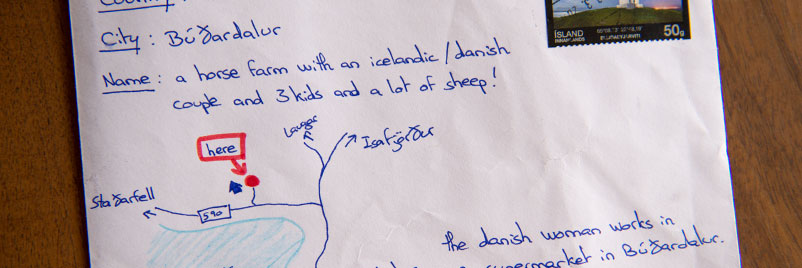 City : Búðardalur
Name : a horse farm with an icelandic/danish
couple and 3 kids and a lot of sheep!
ÍSLAND
50g
here
Laugar
Isafjörður
Staðarfell
590
the danish woman works in
supermarket in Búðardalur.